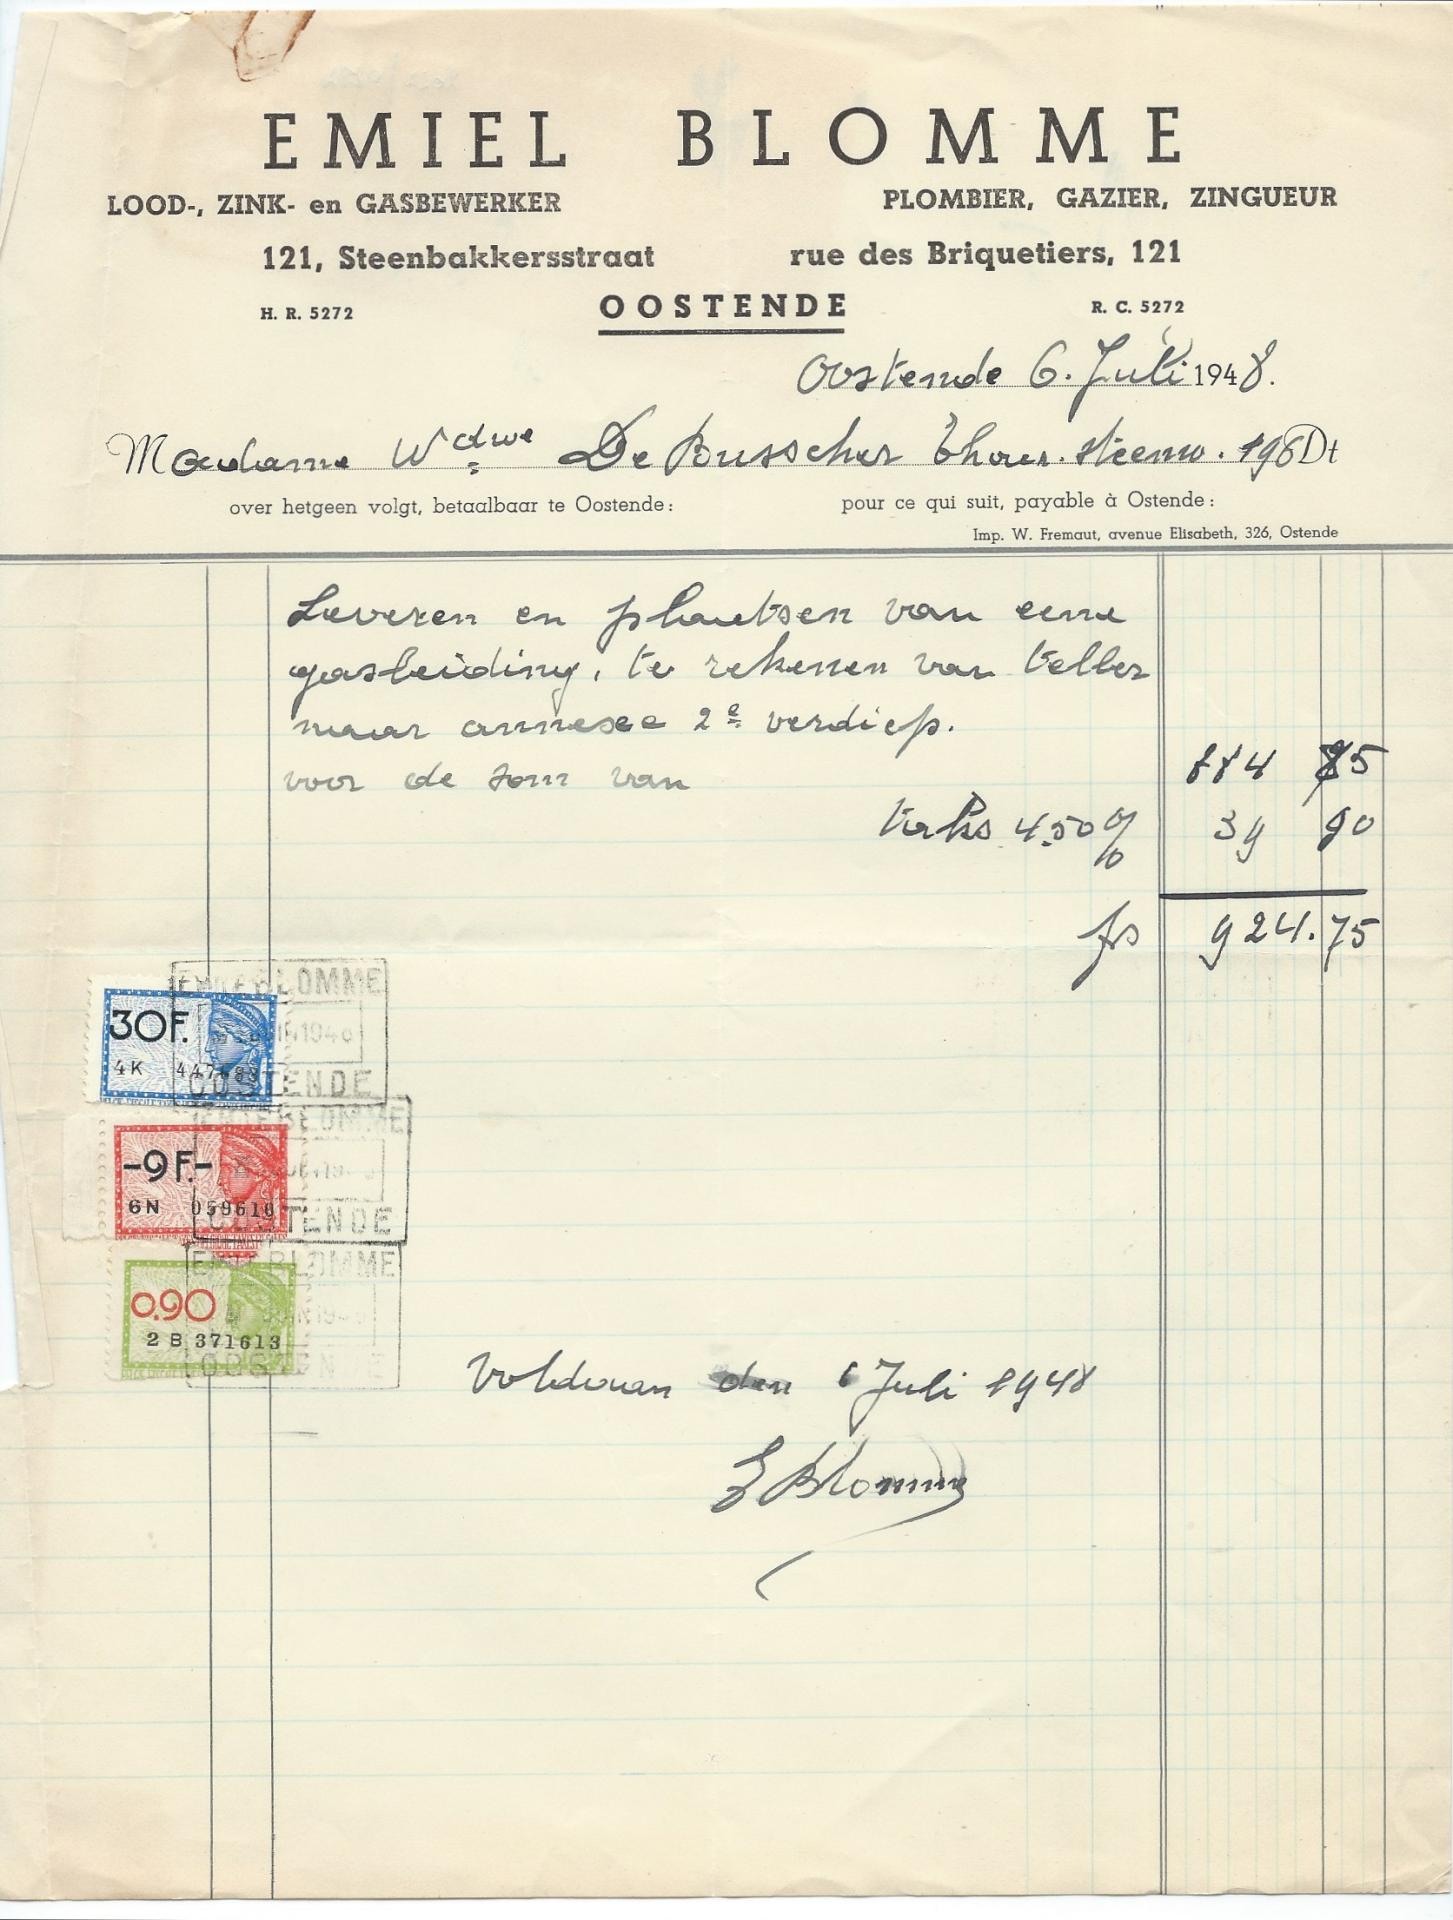 EMIEL BLOMME
LOOD-, ZINK- en GASBEWERKER PLOMBIER, GAZIER, ZINGUEUR
121, Steenbakkersstraat rue des Briquetiers, 121
H. R. 5272 OOSTENDE R. C. 5272
Oostende 6. Juli 1948.
Madame Wdwe De Busscher Thour. steenw. 196 Dt
over hetgeen volgt, betaalbaar te Oostende: pour ce qui suit, payable à Ostende:
Imp. W. Fremaut, avenue Elisabeth, 326, Ostende
Leveren en plaatsen van eene
gasleiding, te rekenen van teller
naar annexe 2e verdiep.
voor de som van 884 85
taks 4.50 % 39 90
frs 924.75
EMIEL BLOMME
30F.
4K
OOSTENDE
EMIEL BLOMME
-9F.-
6N 059610
OOSTENDE
EMIEL BLOMME
0.90
2 B 371613
OOSTENDE
Voldaan den 6 Juli 1948
E Blomme